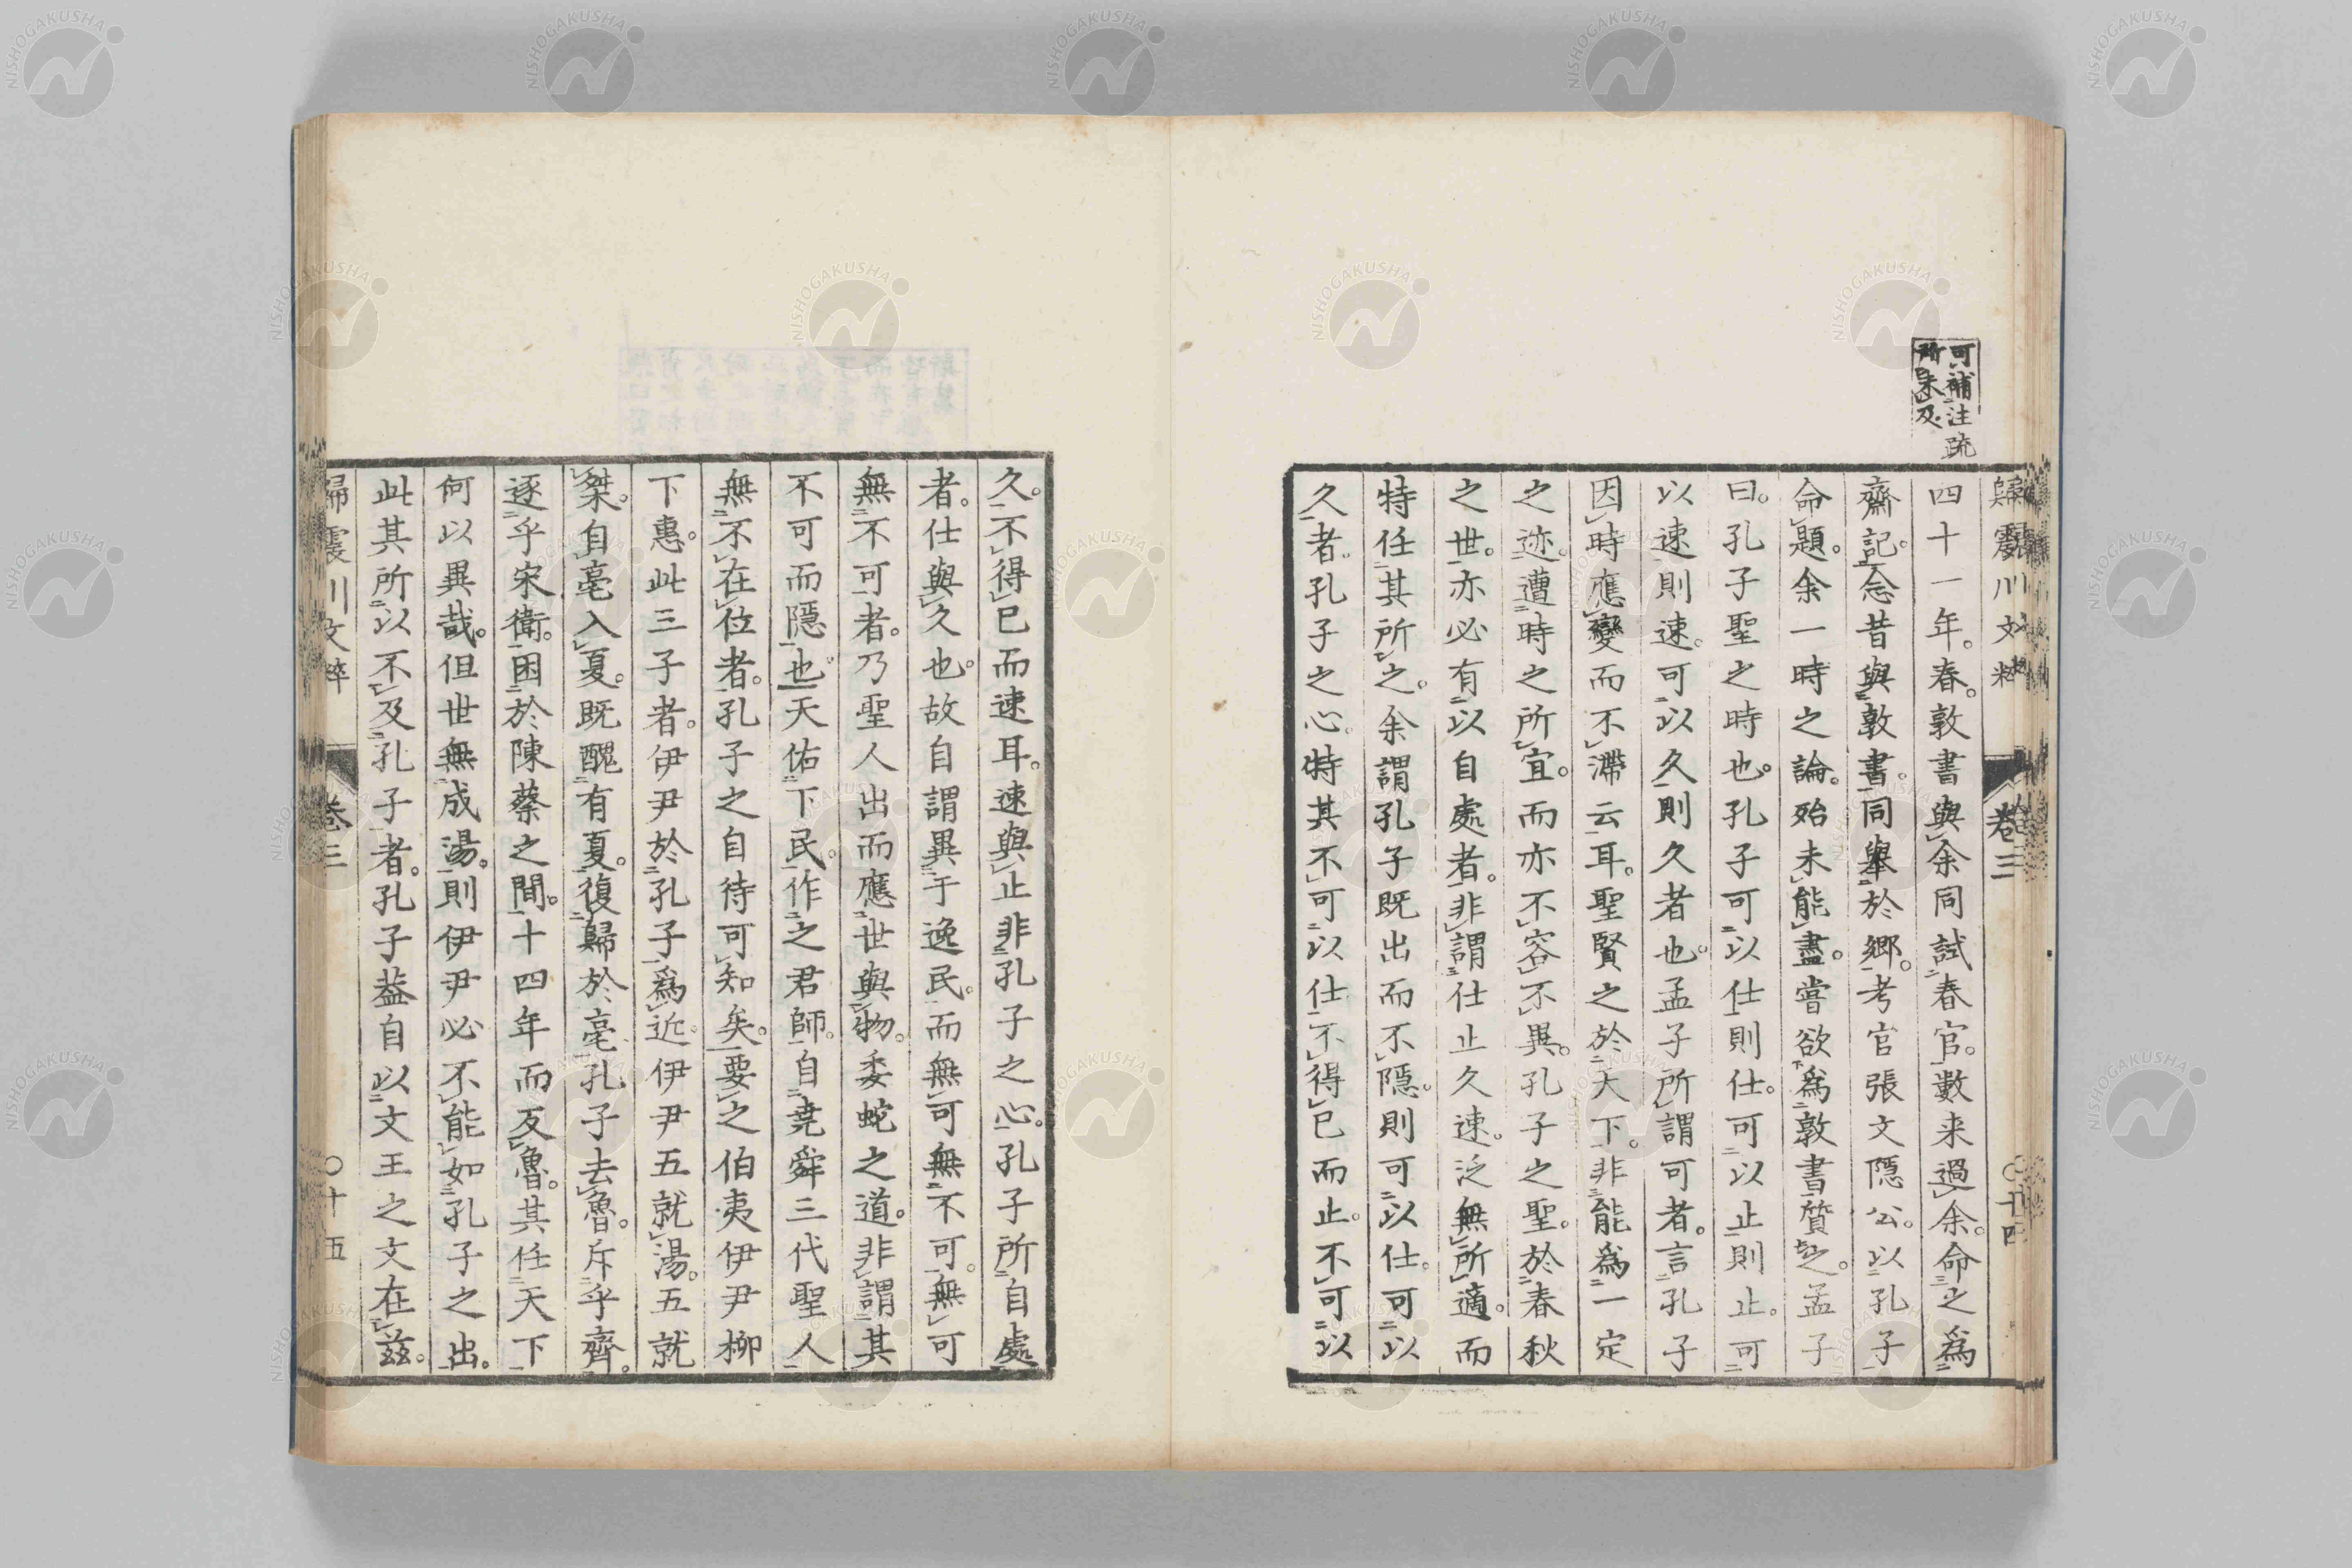 歸震川文粹 卷三 〇十四
可補注疏
所未及
四十一年。春。敦書與余同試春官。數来過余。命之爲
齋記。念昔與敦書。同舉於鄉。考官張文隱公。以孔子
命題。余一時之論。殆未能盡。嘗欲爲敦書質之。孟子
曰。孔子聖之時也。孔子可以仕則仕。可以止則止。可
以速則速。可以久則久者也。孟子所謂可者。言孔子
因時應變而不滯云耳。聖賢之於天下。非能爲一定
之迹。遭時之所宜。而亦不容不異。孔子之聖。於春秋
之世。亦必有以自處者。非謂仕止久速。泛無所適。而
特任其所之。余謂孔子既出而不隱。則可以仕。可以
久者。孔子之心。特其不可以仕。不得已而止。不可以
久。不得已而速耳。速與止非孔子之心。孔子所自處
者。仕與久也。故自謂異于逸民。而無可無不可。無可
無不可者。乃聖人出而應世與物。委蛇之道。非謂其
不可而隱也。天佑下民。作之君師。自堯舜三代聖人
無不在位者。孔子之自待可知矣。要之伯夷伊尹柳
下惠。此三子者。伊尹於孔子爲近。伊尹五就湯。五就
桀。自亳入夏。既醜有夏。復歸於亳。孔子去魯。斥乎齊。
逐乎宋衛。困於陳蔡之間。十四年而反魯。其任天下
何以異哉。但世無成湯。則伊尹必不能如孔子之出。
此其所以不及孔子者。孔子葢自以文王之文在茲。
歸震川文粹 卷三 〇十五